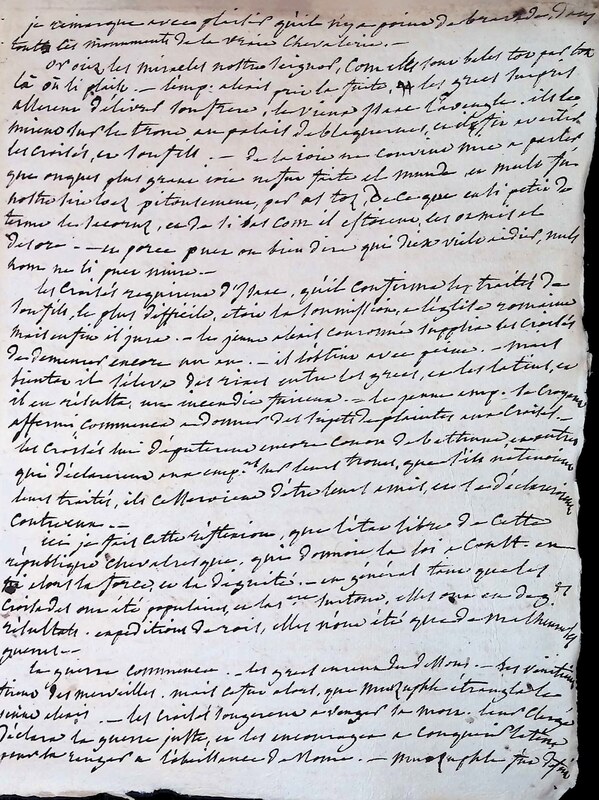 je remarque avec plaisir qu'il n'y a point de bravade, dans
tous ces monuments de la vraie chevalerie. —
or oiez les miracles nostre seignor, com elles sont beles tot par tot
là où li plaist. — l'emp. alexis prit la fuite, les grecs surpris
allerent délivrer son frère, le vieux Isaac l'aveugle. ils le
mirent sur le trone, au palais de blaquernes, et
les croisés, et son fils. — de la joie ne convint mie a parler
que onques plus grant joie ne fu faite el monde et mult fu
nostre sire loez pitousement, par as toz, de ce que en si petit de
terme les secorut, et de si bas com il estoient, les ot mis el
desore. — et porce puet on bien dire qui diex vielt aidier, nuls
hom ne li puet nuire —
les croisés requirent d'Isaac, qu'il confirme les traités de
son fils, le plus difficile, étoit la soumission, a l'église romaine
mais enfin il jura. — le jeune alexis couronné supplia les croisés
de demeurer encore un an. — il l'obtint avec peine. — mais
bientot il s'éleva des rixes entre les grecs, et les latins, et
il en résulta, un incendie furieux. — le jeune emp. se croyant
affermi commença a donner des sujets de plaintes aux croisés. —
les croisés lui députerent encore conon de bethune, et autres
qui déclarerent aux emp.rs sur leurs trones, que s'ils ne tenoient
leurs traités, ils cesseroient d'être leurs amis, et se déclareroient
contre eux. —
ici je fais cette réflexion, que l'état libre de cette
république chevaleresque, qui donnoit la loi a Const. en
a tous la force, et la dignité. — en général tant que les
croisades ont été populaires, et les surtout, elles ont eu de g.ds
résultats. expéditions de rois, elles n'ont été que de malheureuses
guerres —
la guerre commença. les grecs eurent du dessous. — les vénitiens
firent des merveilles. mais ce fut alors, que murzuphle étrangla le
jeune alexis. — les croisés songerent a venger sa mort. leur clergé
déclara la guerre juste, et les encouragea a conquérir la terre
pour la ranger a l'obeissance de Rome. — murzuphle fut défait